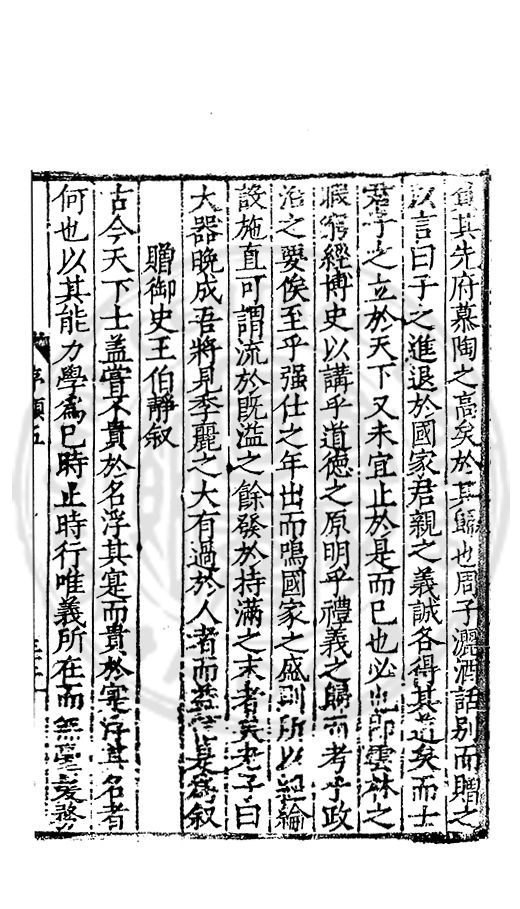 其先府慕陶之高矣於其歸也周子灑酒話別而贈之
以言曰子之進退於國家君親之義誠各得其道矣而士
君子之立於天下又未宜止於是而已也必也即雲林之
暇窮經博史以講乎道德之原明乎禮義之歸而考乎政
治之要俟至乎强仕之年出而鳴國家之盛則所以經綸
設施直可謂流於旣溢之餘發於持滿之末者矣老子曰
大器晚成吾將見季麗之大有過於人者而益是爲叙
贈御史王伯靜叙
古今天下士盖嘗不貴於名浮其寔而貴於寔浮其名者
何也以其能力學爲已時止時行唯義所在而無毫髮務
序類五